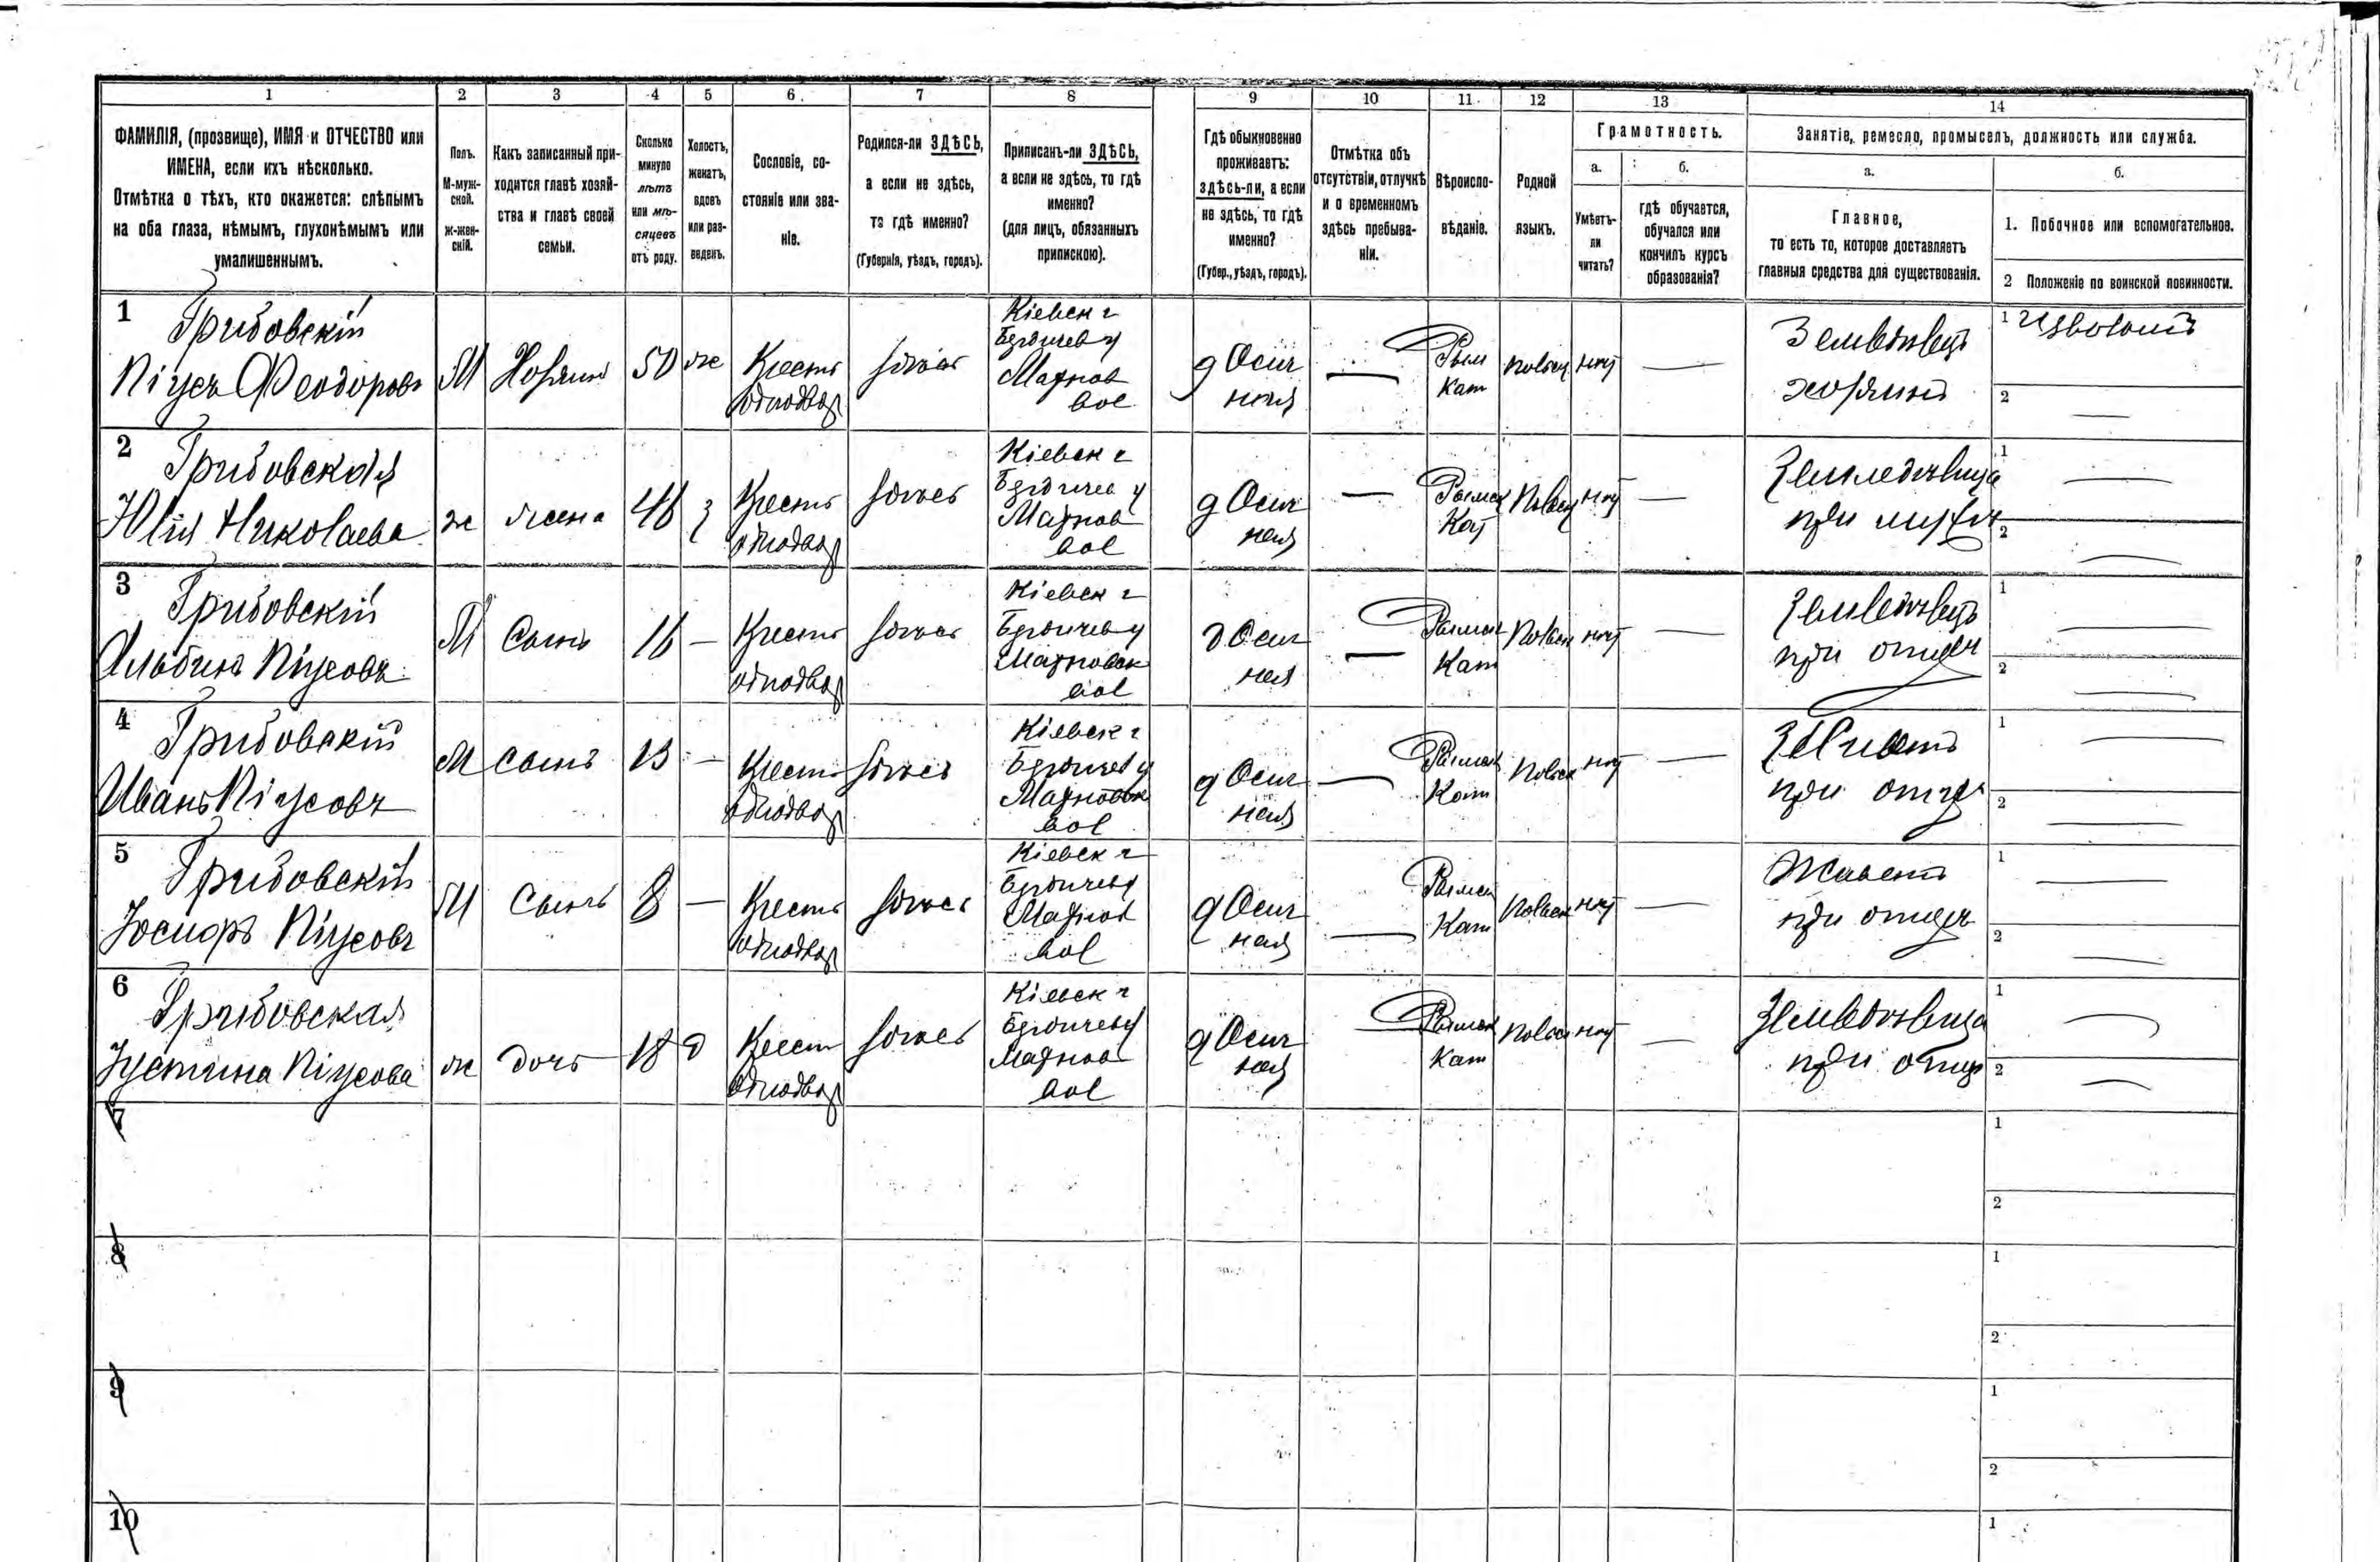 1 2 3 4 5 6 7 8 9 10 11 12 13 14
ФАМИЛІЯ, (прозвище), ИМЯ и ОТЧЕСТВО или
ИМЕНА, если ихъ нѣсколько.
Отмѣтка о тѣхъ, кто окажется: слѣпымъ
на оба глаза, нѣмымъ, глухонѣмымъ или
умалишеннымъ.
Полъ.
М-муж-
ской.
ж-жен-
скій.
Какъ записанный при-
ходится главѣ хозяй-
ства и главѣ своей
семьи.
Сколько
минуло
лѣтъ
или мѣ-
сяцевъ
отъ роду.
Холостъ,
женатъ,
вдовъ
или раз-
веденъ.
Сословіе, со-
стояніе или зва-
ніе.
Родился-ли ЗДѢСЬ,
а если не здѣсь,
то гдѣ именно?
(Губернія, уѣздъ, городъ).
Приписанъ-ли ЗДѢСЬ,
а если не здѣсь, то гдѣ
именно?
(для лицъ, обязанныхъ
припискою).
Гдѣ обыкновенно
проживаетъ:
здѣсь-ли, а если
не здѣсь, то гдѣ
именно?
(Губер., уѣздъ, городъ).
Отмѣтка объ
отсутствіи, отлучкѣ
и о временномъ
здѣсь пребыва-
ніи.
Вѣроиспо-
вѣданіе.
Родной
языкъ.
Грамотность.
а. б.
Умѣетъ-
ли
читать?
гдѣ обучается,
обучался или
кончилъ курсъ
образованія?
Занятіе, ремесло, промыселъ, должность или служба.
а. б.
Главное,
то есть то, которое доставляетъ
главныя средства для существованія.
1. Побочное или вспомогательное.
2 Положеніе по воинской повинности.
1
Грибовскій
Піусъ Феодоровъ
М
Хозяинъ
50
ж
Крестъ
однодвор
здѣсь
Кіевск г
Бердичев у
Махнов
вол
д Осич
ная
—
Рим
Кат
польск
нѣт
—
Земледѣлец
хозяинъ
1 Извозомъ
2 —
2
Грибовская
Юлія Николаева
ж
жена
46
з
Крестъ
однодвор
здѣсь
Кіевск г
Бердичев у
Махнов
вол
д Осич
ная
—
Римск
Кат
Польск
нѣт
—
Земледѣлица
при мужѣ
1 —
2 —
3
Грибовскій
Альбинъ Піусовъ
М
Сынъ
16
—
Крестъ
однодвор
здѣсь
Кіевск г
Бердичев у
Махновск
вол
д Осич
ная
—
Римск
Кат
Польск
нѣт
—
Земледѣлец
при отцѣ
1 —
2 —
4
Грибовскій
Иванъ Піусовъ
М
сынъ
13
—
Крестъ
однодвор
здѣсь
Кіевск г
Бердичев у
Махновск
вол
д Осич
ная
—
Римск
Кат
Польск
нѣт
—
при отцѣ
1 —
2 —
5
Грибовскій
Іосифъ Піусовъ
М
Сынъ
8
—
Крестъ
однодвор
здѣсь
Кіевск г
Бердичев у
Махнов
вол
д Осич
ная
—
Римск
Кат
Польск
нѣт
—
Живетъ
при отцѣ
1 —
2 —
6
Грибовская
Іустина Піусова
ж
дочь
18
д
Крест
Однодвор
здѣсь
Кіевск г
Бердичев у
Махнов
вол
д Осич
ная
—
Римск
Кат
польск
нѣт
—
Земледѣлица
при отцѣ
1 —
2 —
7
1
2
8
1
2
9
1
2
10
1